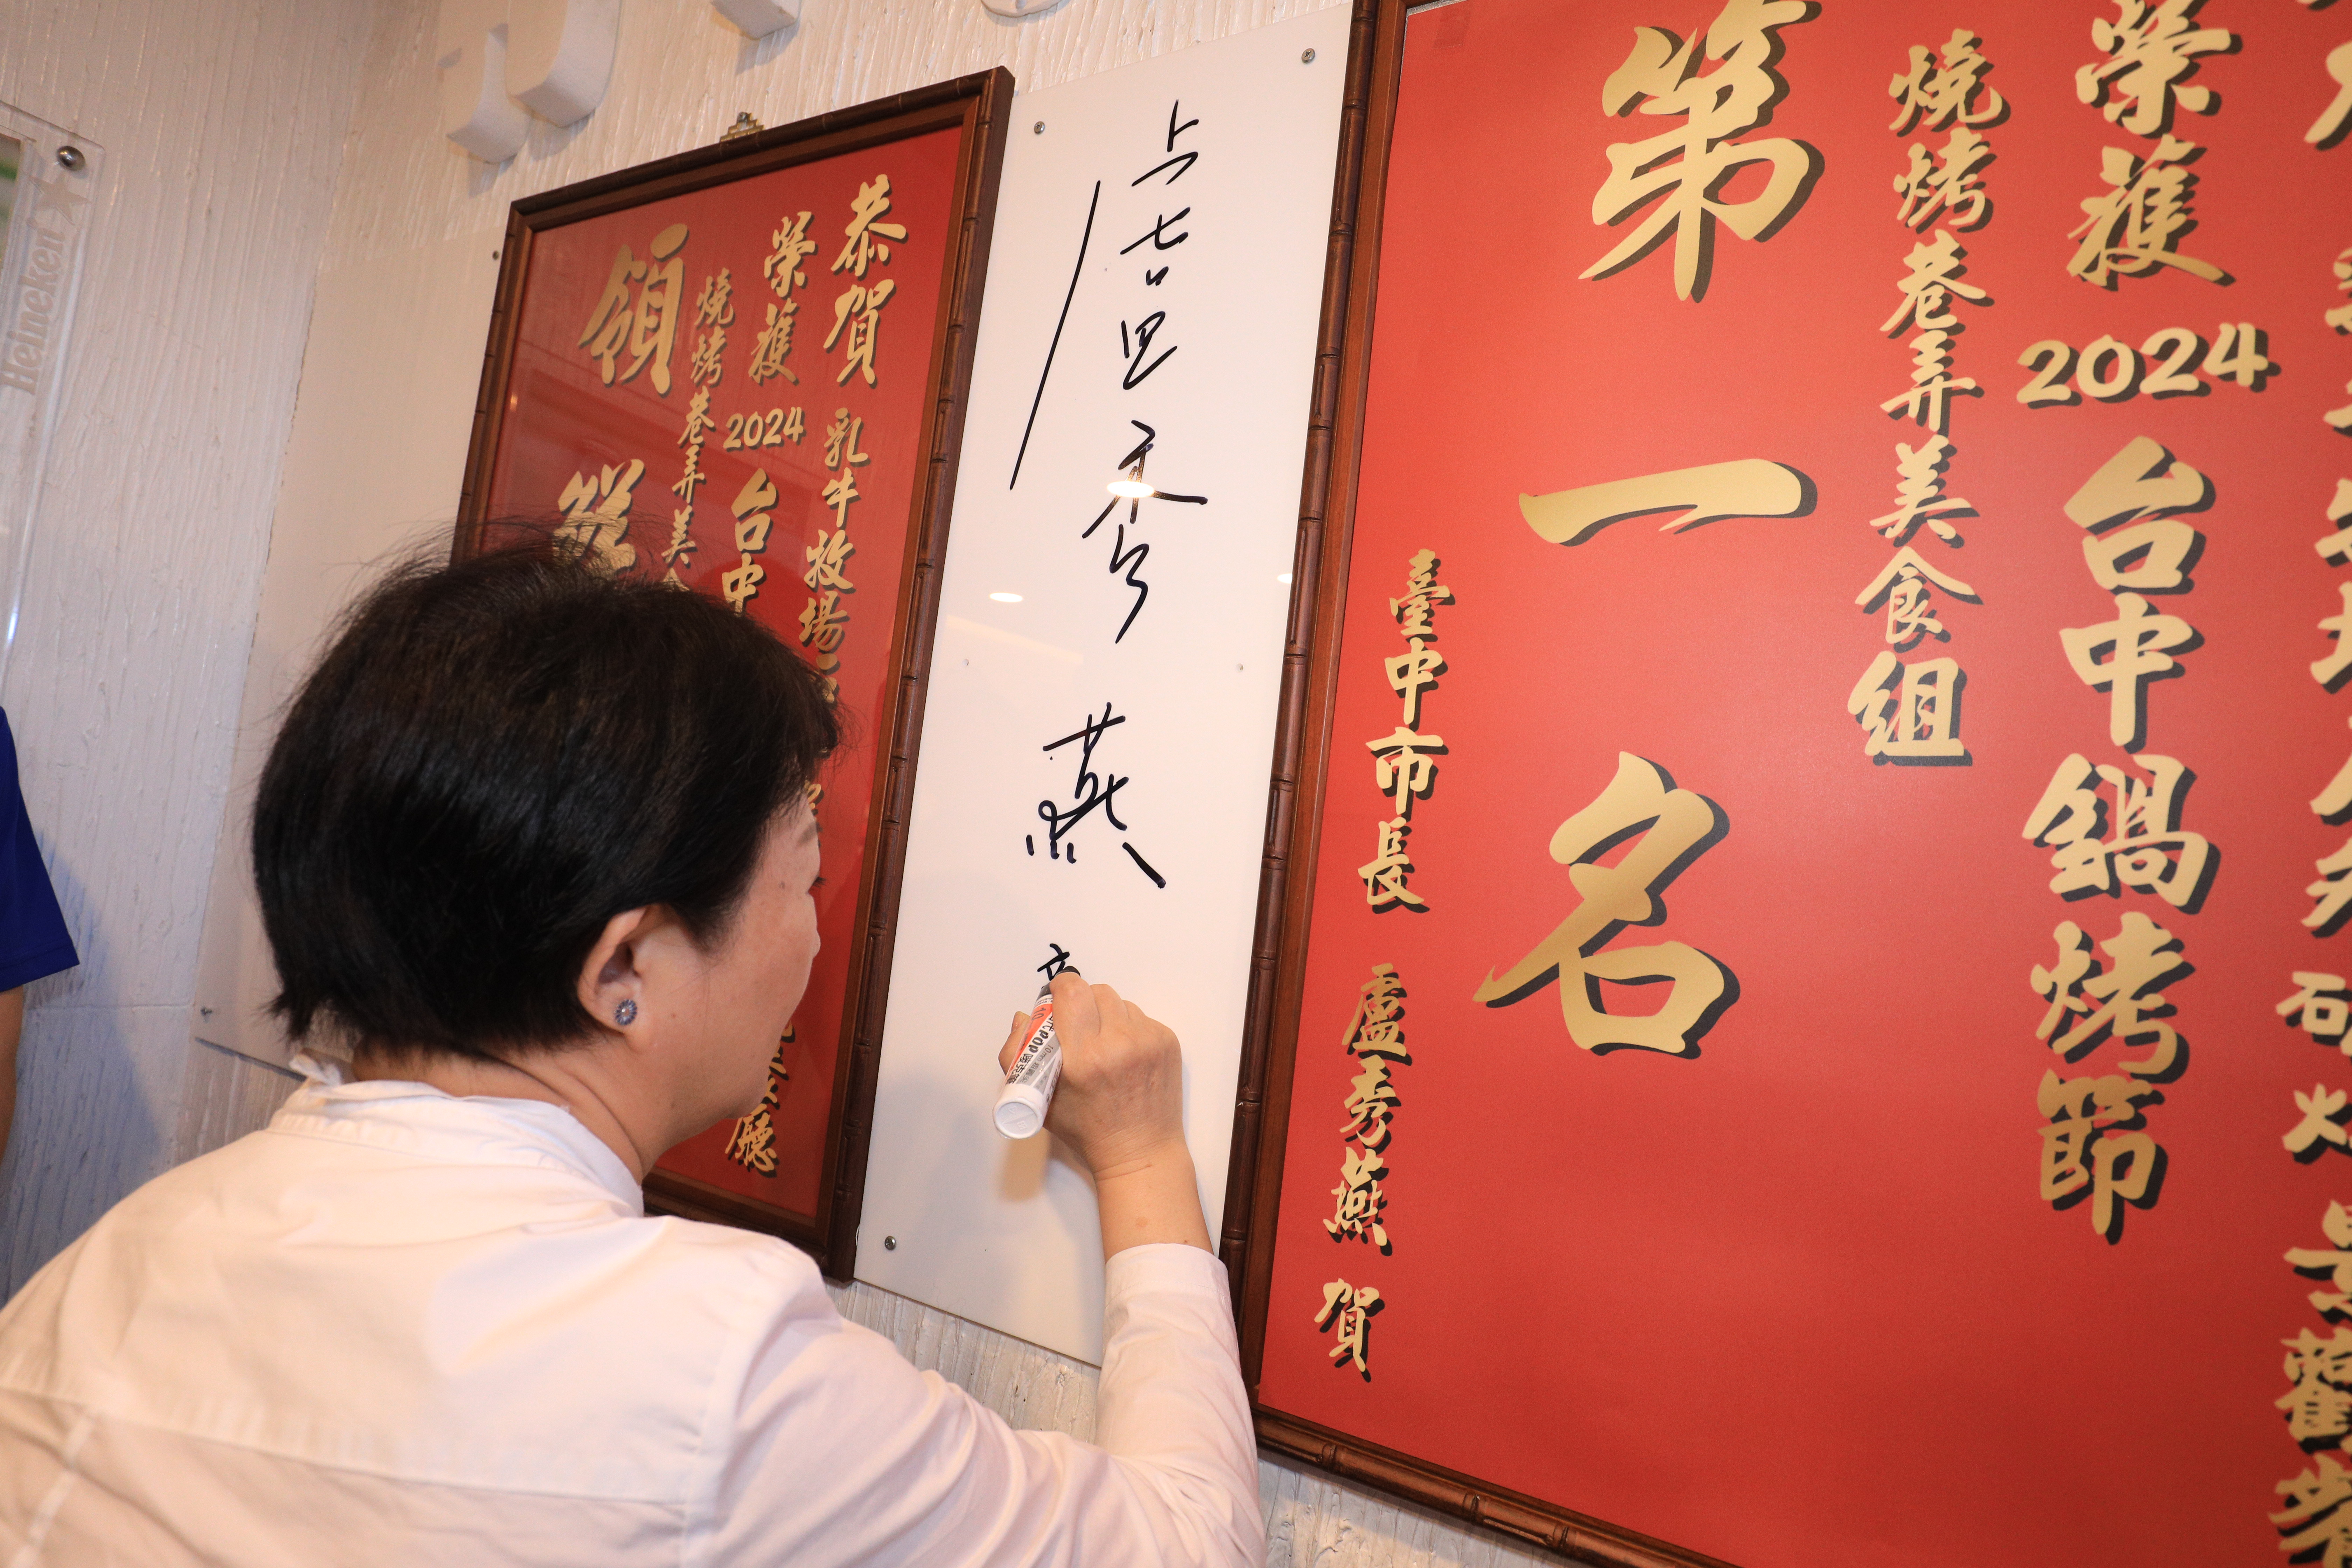 Heineken
恭賀 乳牛牧場
榮獲 2024 台中
燒烤巷弄美
領
廳
盧秀燕
POP
榮獲 2024 台中鍋烤節
燒烤巷弄美食組
第一名
臺中市長 盧秀燕 賀